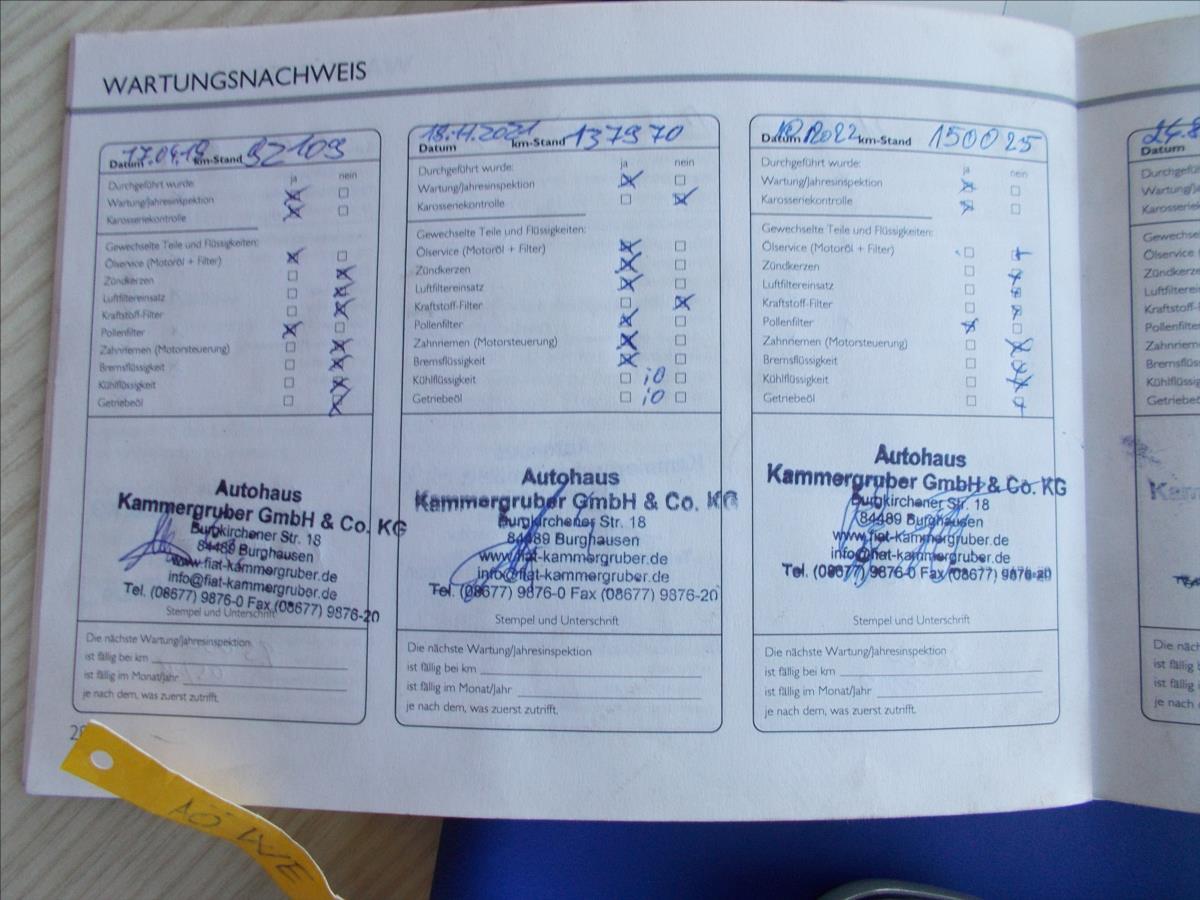 WARTUNGSNACHWEIS
17.04.19 92109
Datum km-Stand
Durchgeführt wurde: ja nein
Wartung/Jahresinspektion
Karosseriekontrolle
Gewechselte Teile und Flüssigkeiten:
Ölservice (Motoröl + Filter)
Zündkerzen
Luftfiltereinsatz
Kraftstoff-Filter
Pollenfilter
Zahnriemen (Motorsteuerung)
Bremsflüssigkeit
Kühlflüssigkeit
Getriebeöl
Autohaus
Kammergruber GmbH & Co. KG
Burgkirchener Str. 18
84489 Burghausen
www.fiat-kammergruber.de
info@fiat-kammergruber.de
Tel. (08677) 9876-0 Fax (08677) 9876-20
Stempel und Unterschrift
Die nächste Wartung/Jahresinspektion
ist fällig bei km
ist fällig im Monat/Jahr
je nach dem, was zuerst zutrifft.
18.11.2021 137970
Datum km-Stand
Durchgeführt wurde: ja nein
Wartung/Jahresinspektion
Karosseriekontrolle
Gewechselte Teile und Flüssigkeiten:
Ölservice (Motoröl + Filter)
Zündkerzen
Luftfiltereinsatz
Kraftstoff-Filter
Pollenfilter
Zahnriemen (Motorsteuerung)
Bremsflüssigkeit
Kühlflüssigkeit iO
Getriebeöl iO
Autohaus
Kammergruber GmbH & Co. KG
Burgkirchener Str. 18
84489 Burghausen
www.fiat-kammergruber.de
info@fiat-kammergruber.de
Tel. (08677) 9876-0 Fax (08677) 9876-20
Stempel und Unterschrift
Die nächste Wartung/Jahresinspektion
ist fällig bei km
ist fällig im Monat/Jahr
je nach dem, was zuerst zutrifft.
150025
Datum km-Stand
Durchgeführt wurde: ja nein
Wartung/Jahresinspektion
Karosseriekontrolle
Gewechselte Teile und Flüssigkeiten:
Ölservice (Motoröl + Filter)
Zündkerzen
Luftfiltereinsatz
Kraftstoff-Filter
Pollenfilter
Zahnriemen (Motorsteuerung)
Bremsflüssigkeit
Kühlflüssigkeit
Getriebeöl
Autohaus
Kammergruber GmbH & Co. KG
Burgkirchener Str. 18
84489 Burghausen
www.fiat-kammergruber.de
info@fiat-kammergruber.de
Tel. (08677) 9876-0 Fax (08677) 9876-20
Stempel und Unterschrift
Die nächste Wartung/Jahresinspektion
ist fällig bei km
ist fällig im Monat/Jahr
je nach dem, was zuerst zutrifft.
Datum
Ölservice
Zündkerzen
Pollenfilter
Getriebeöl
ist fällig
ist fällig
je nach
AÖ WE